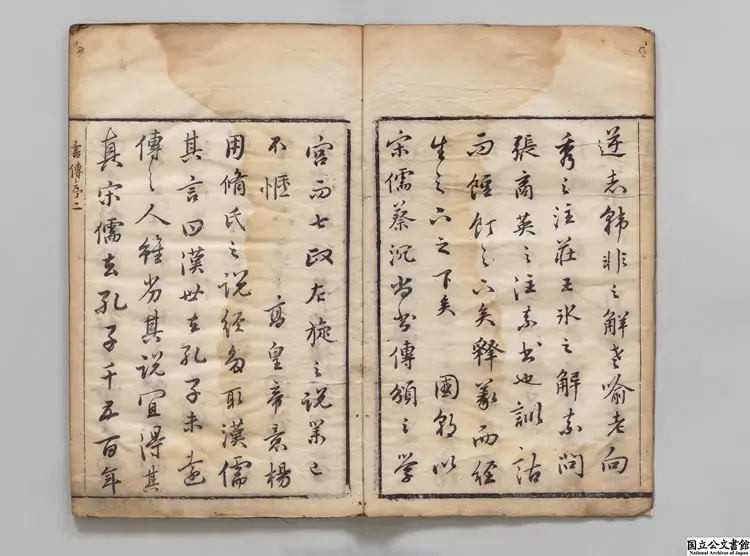 逆志韓非之解老喻老向
秀之注莊王冰之解素問
張商英之注素書也訓詁
而餖飣之下矣釋義而經
生之下之下矣 國朝以
宋儒蔡沉尚書傳頒之學
宮而七政左旋之說業已
不愜 高皇帝意楊
用脩氏之說經多取漢儒
其言曰漢世去孔子未遠
傳之人雖劣其說宜得其
真宋儒去孔子千五百年
書傳序二
国立公文書館
National Archives of Japan